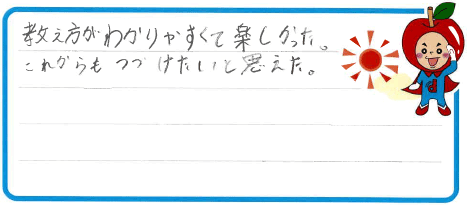 教え方がわかりやすくて楽しかった。
これからもつづけたいと思えた。
d